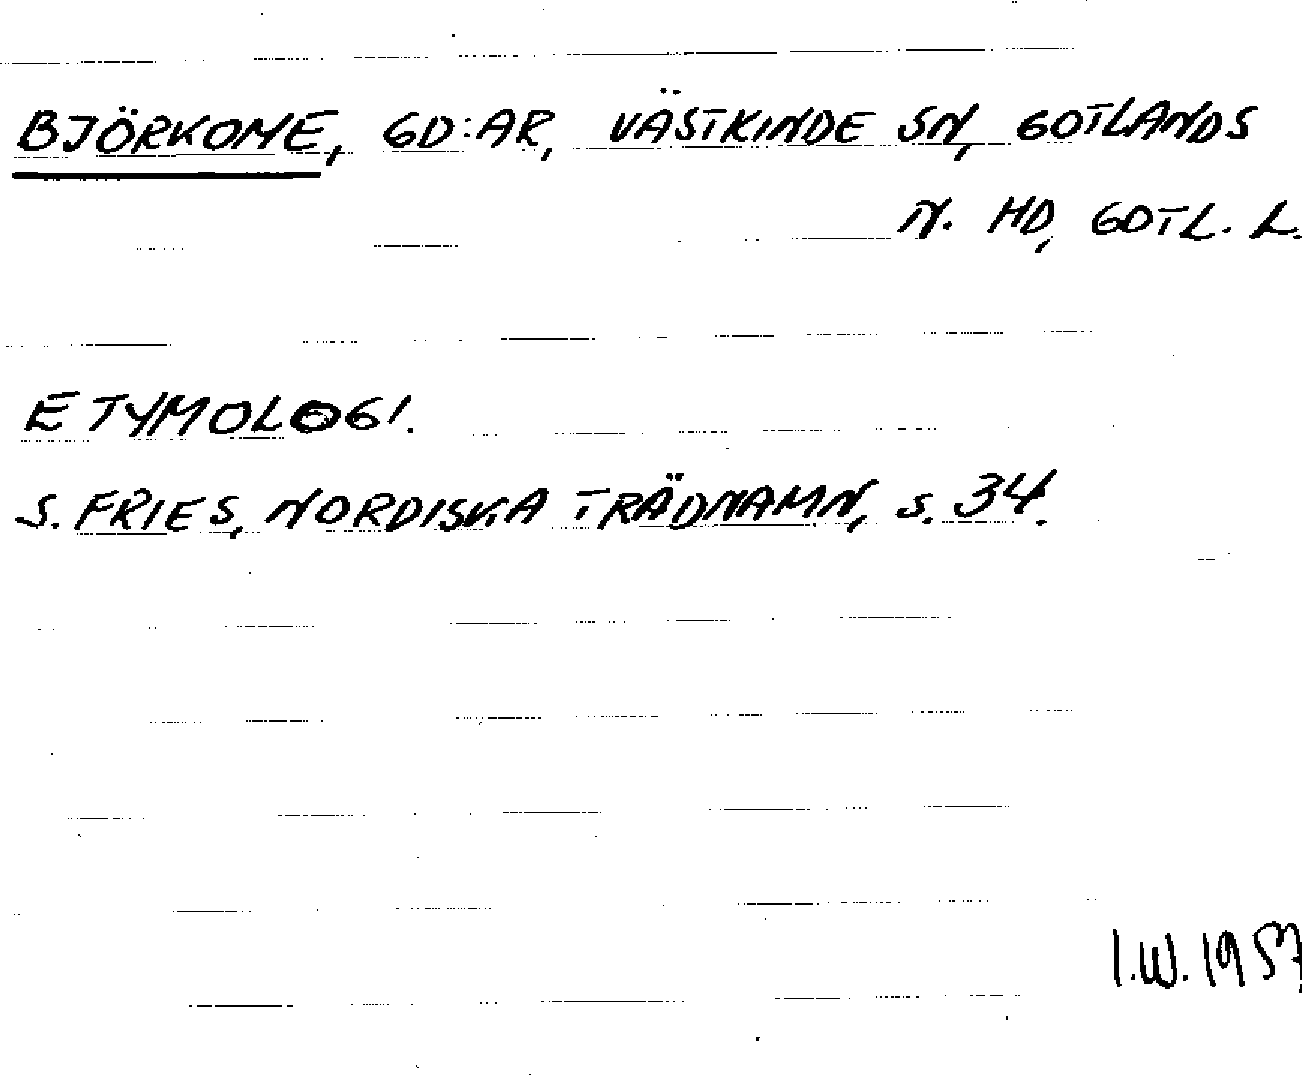 BJÖRKOME, GD:AR, VÄSTKINDE SN, GOTLANDS
N. HD, GOTL. L.
ETYMOLOGI.
S. FRIES, NORDISKA TRÄDNAMN, S. 34.
I.W. 1957